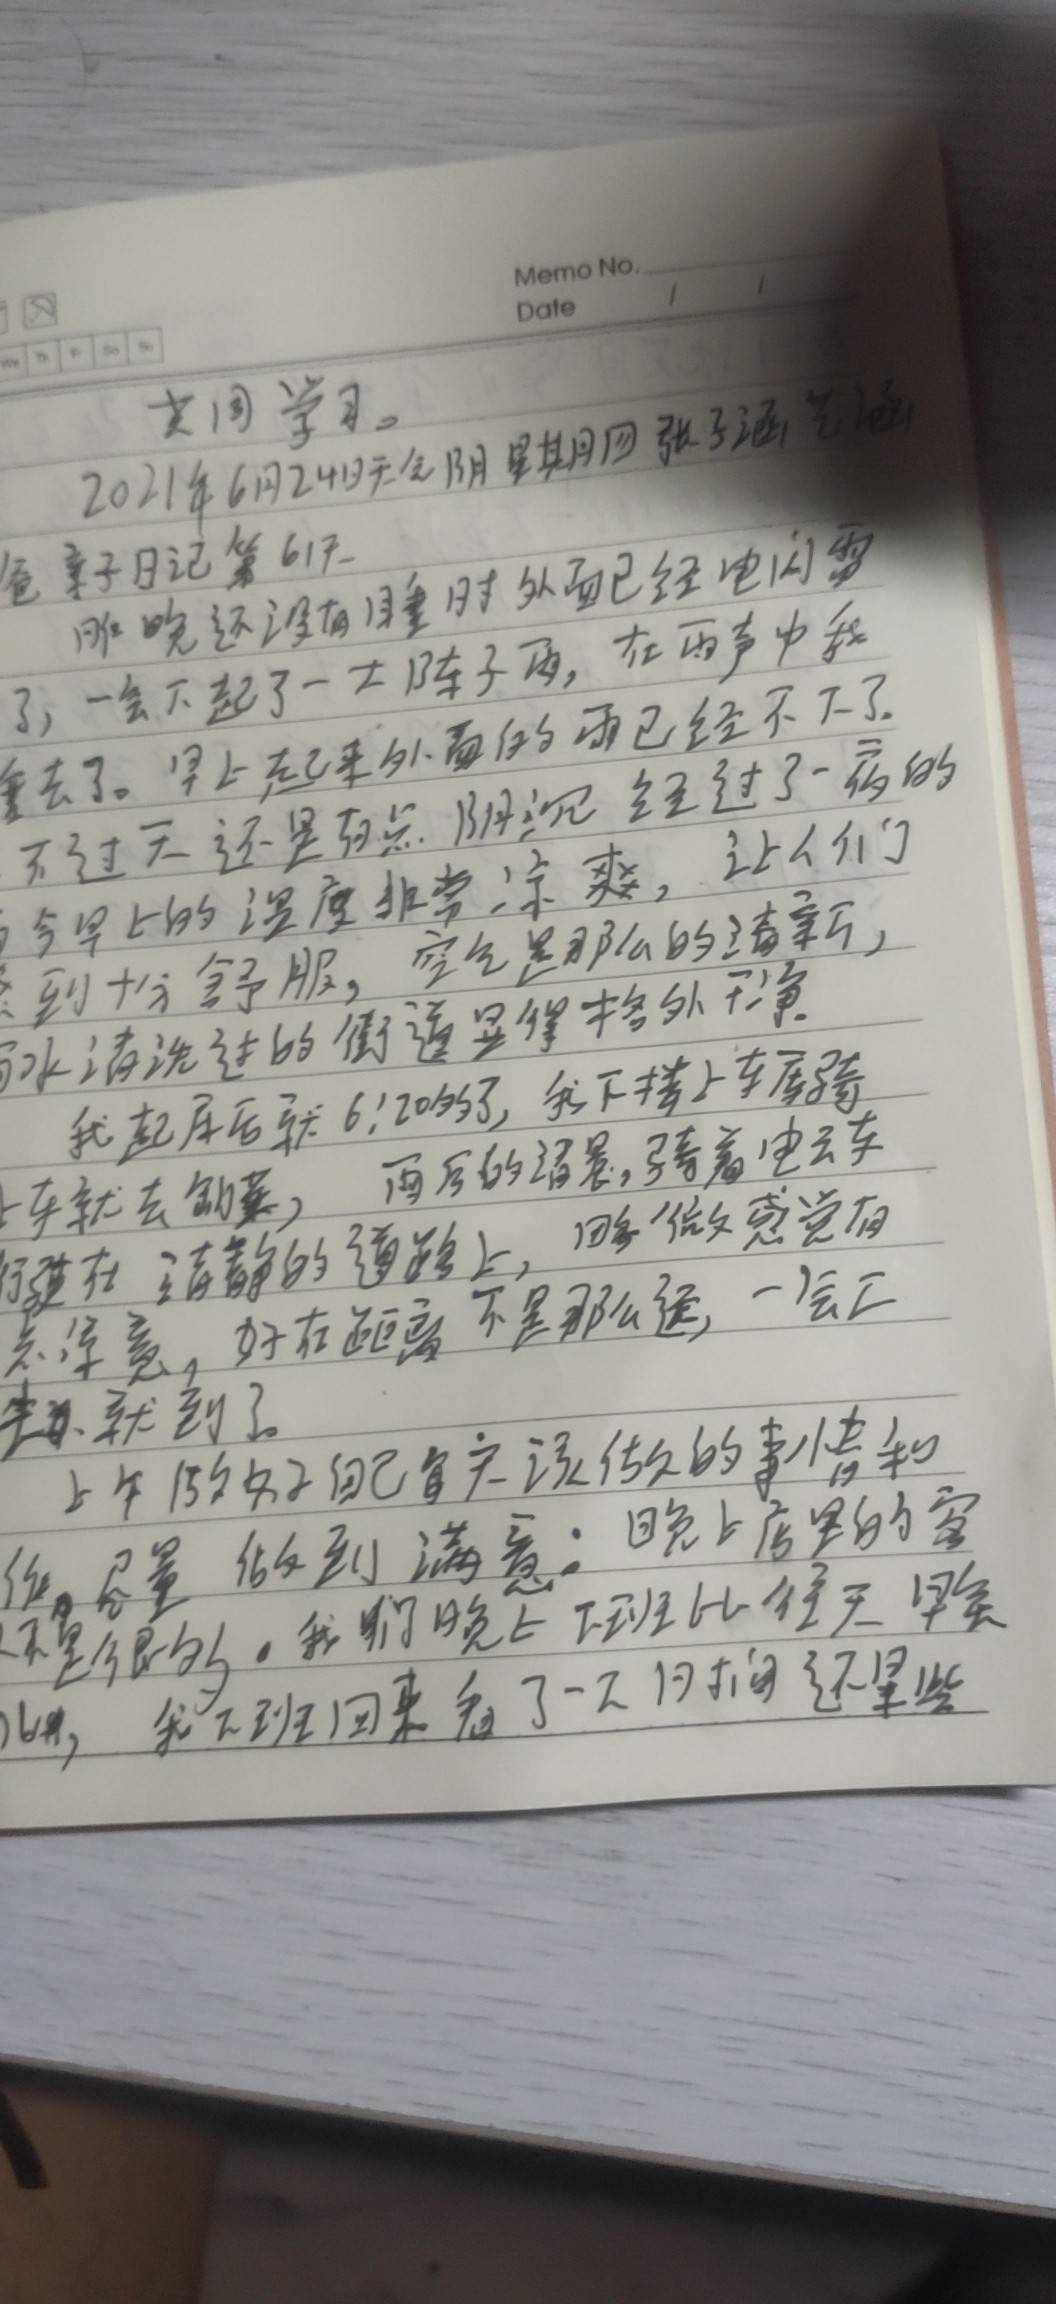 Memo No.
Date / /
共同学习。
2021年6月24日天气阴星期四张子涵
爸亲子日记第617
昨晚还没有睡时外面已经电闪雷
了，一会下起了一大阵子雨，在雨声中我
去了。早上起来外面的雨已经不下了。
不过天还是有点阴沉经过了一夜的
今早上的温度非常凉爽，让人们
到十分舒服，空气是那么的清新，
水清洗过的街道显得格外干净
我起床后就6:20多了，我下楼上车库骑
上车就去刨菜，雨后的清晨，骑着电动车
行驶在清静的道路上，略微感觉有
点凉意，好在距离不是那么远，一会工
就到了。
上午做好自己每天该做的事情和
作，尽量做到满意：晚上店里的客
不是很多。我们晚上下班比往天早会
我下班回来看了一下时间还早些